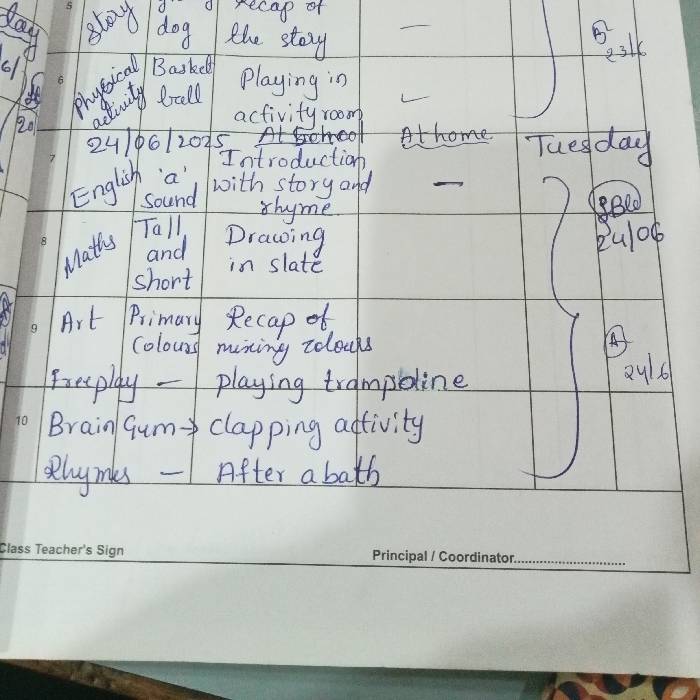 5 Story dog Recap of
the story
23/6
6 Physical activity Basket ball Playing in
activity room
24/06/2025 At School At home Tuesday
7 English 'a' Sound Introduction
with story and
rhyme. –
24/06
8 Maths Tall and short Drawing
in slate
9 Art Primary Colours Recap of
mixing colours
A 24/6
Freeplay – playing trampoline
10 Brain Gum → clapping activity
Rhymes – After a bath
Class Teacher's Sign Principal / Coordinator..............................